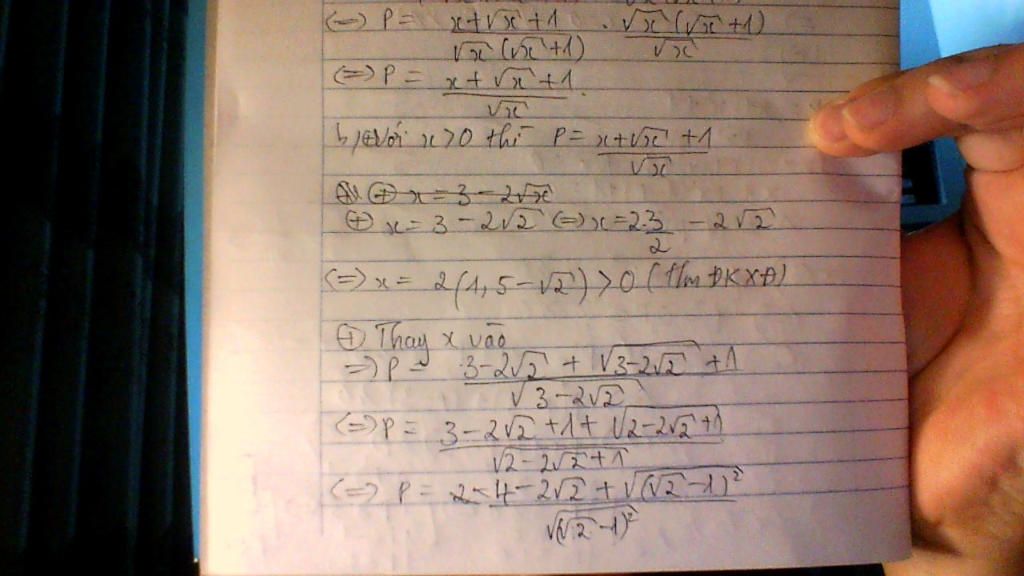 (=) P = x+√x+1 / √x(√x+1) . √x(√x+1) / √x
(=) P = x+√x+1 / √x
b, ⊕ Với x>0 thì P = x+√x+1 / √x
⊕ x = 3-2√x
⊕ x = 3-2√2 (=) x = 2.3/2 - 2√2
(=) x = 2(1,5-√2) > 0 (t/m ĐKXĐ)
⊕ Thay x vào
=> P = 3-2√2 + √3-2√2 + 1 / √3-2√2
(=) P = 3-2√2+1+√2-2√2+1 / √2-2√2+1
(=) P = 4-2√2+√(√2-1)² / √(√2-1)²